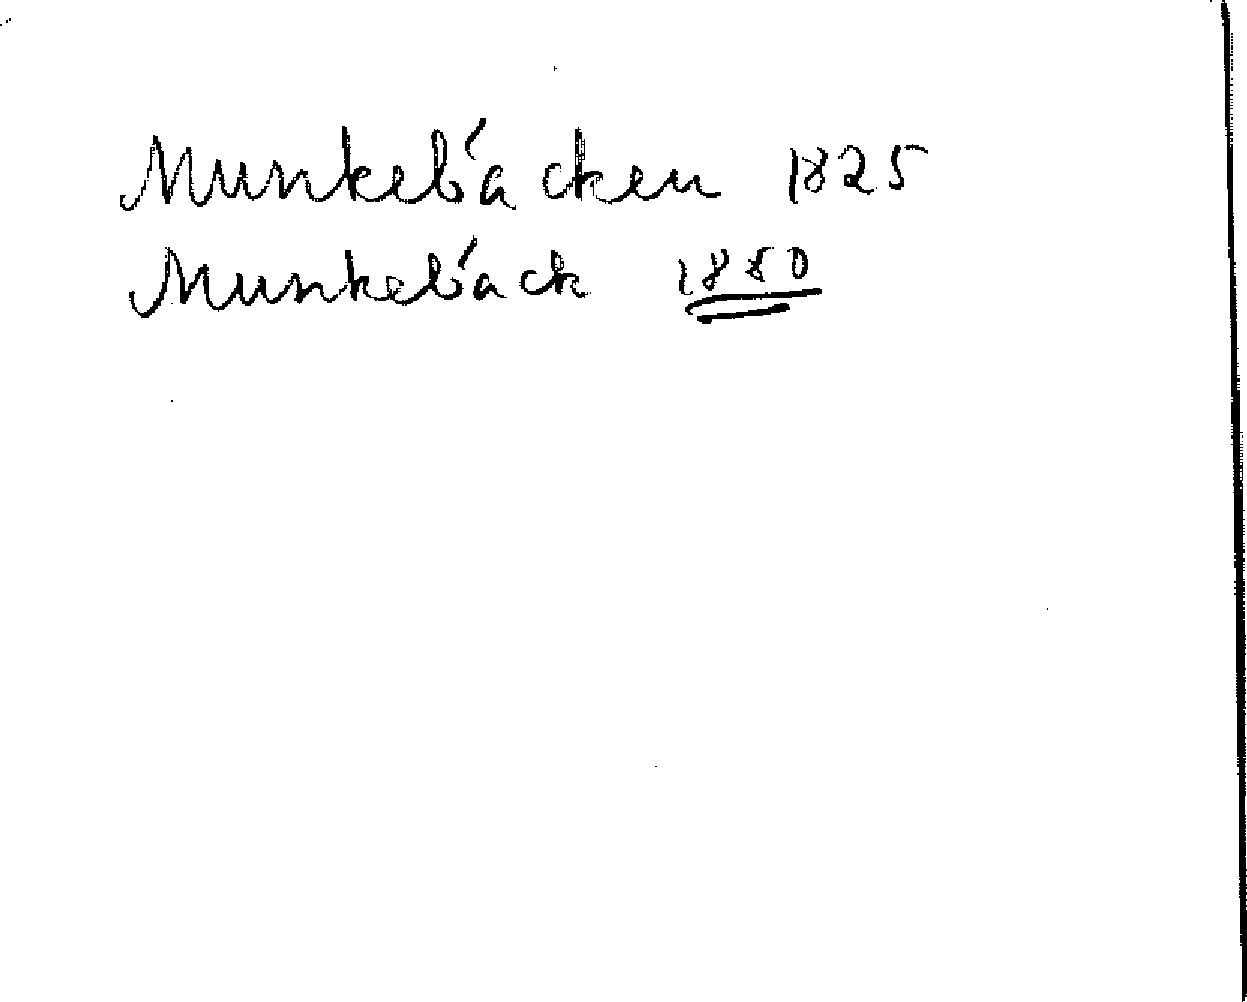 Munkebäcken 1825
Munkebäck 1880